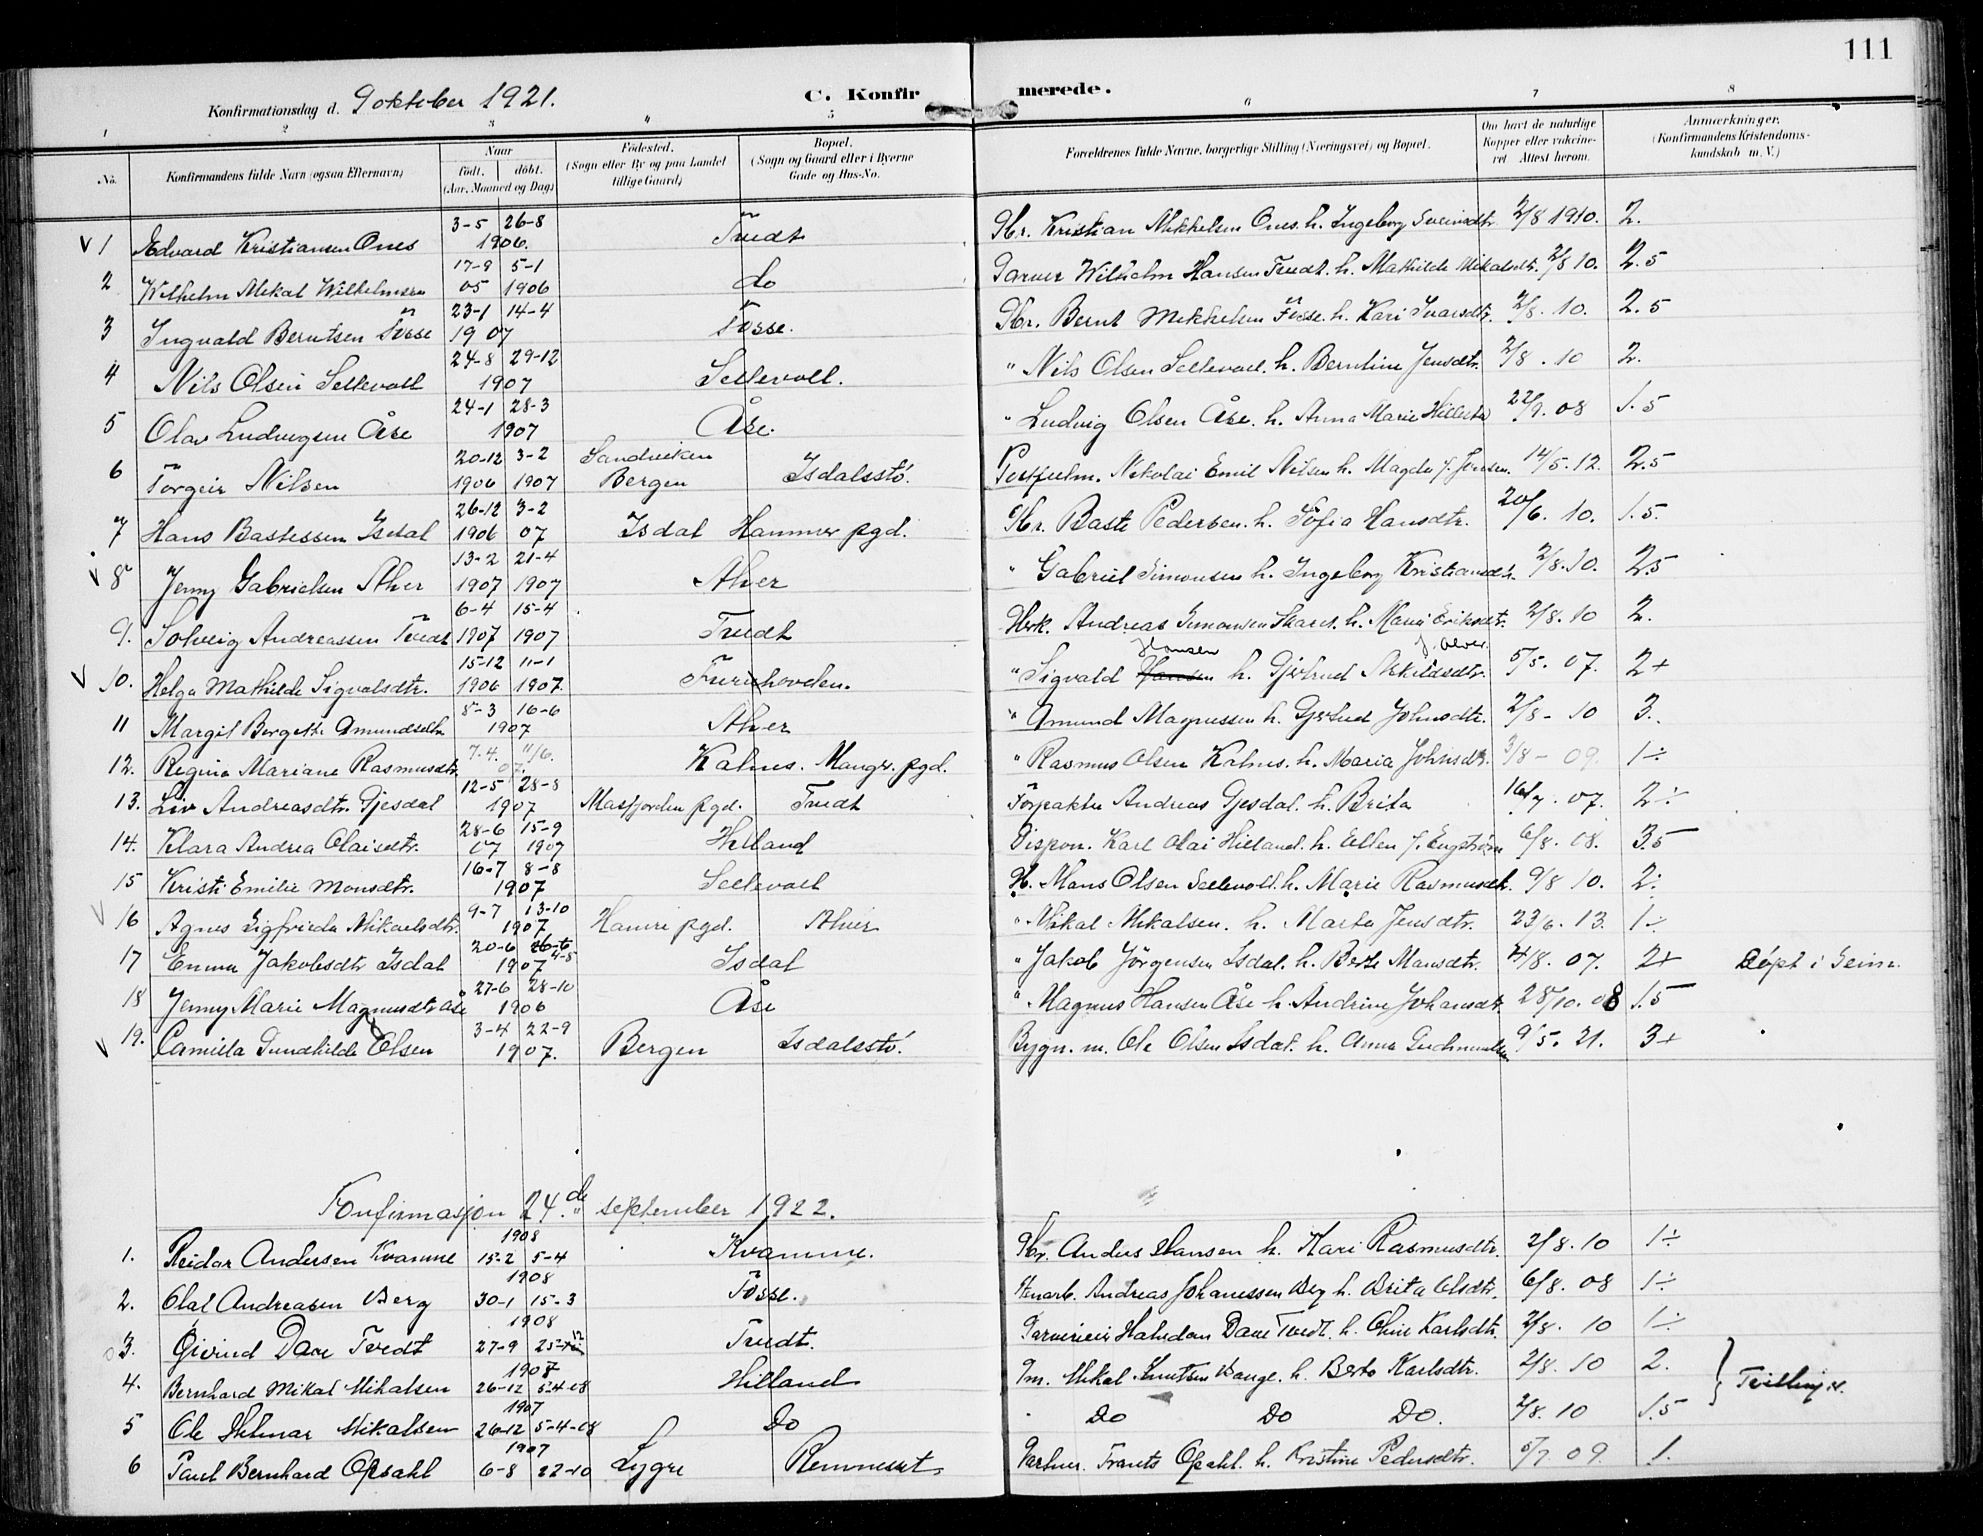 111
Konfirmationsdag d. 9 oktober 1921. C. Konfirmerede.
1 2 3 4 5 6 7 8
No. Konfirmandens fulde Navn (ogsaa Efternavn) Naar födt. döbt. (Aar, Maaned og Dag) Födested. (Sogn eller By og paa Landet tillige Gaard) Bopæl. (Sogn og Gaard eller i Byerne Gade og Hus-No. Forældrenes fulde Navne, borgerlige Stilling (Næringsvei) og Bopæl. Om havt de naturlige Kopper eller vakcineret. Attest herom. Anmærkninger. (Konfirmandens Kristendomskundskab m. V.)
V 1 Edvard Kristiansen Ones 3-5 26-8 1906. Tvedt Gbr. Kristian Mikkelsen Ones. h. Ingeborg Sverinsdtr. 2/8 1910. 2.
2 Wilhelm Mikal Wilhelmsen 17-9 05 5-1 1906 do Garver Wilhelm Hansen Tvedt. h. Mathilde Mikalsdtr. 2/8 10. 2.5
3 Ingvald Berntsen Fosse 23-1 14-4 1907 Fosse. Gbr. Bernt Mikkelsen Fosse. h. Kari Ivarsdtr. 2/8. 10. 2.5
4 Nils Olsen Sellevoll 24-8 29-12 1907 Sellevoll. " Nils Olsen Sellevoll. h. Berntine Jensdtr. 2/8. 10 2.
5 Olav Ludvigsen Åse 24-1 28-3 1907 Åse. " Ludvig Olsen Åse. h. Anna Marie 22/9. 08 1.5
6 Torgeir Nilsen 20-12 1906 3-2 1907 Sandviken Bergen Isdalsstö. Nikolai Emil Nilsen h. Magda f. Jensen. 14/5. 12. 2.5
7 Hans Bastessen Isdal 26-12 1906 3-2 07 Isdal Hammer pgd. Gbr. Baste Pedersen. h. Sofia Hansdtr. 20/6. 10. 1.5.
V 8 Jenny Gabrielsen Alver 13-2 1907 21-4 1907 Alver " Gabriel Simonsen h. Ingeborg Kristiansdtr. 2/8. 10. 2.5
9. Solveig Andreassen Tvedt 6-4 1907 15-4 1907 Tvedt Andreas Simonsen h. Marie Eriksdtr. 2/8. 10 2.
V 10. Helga Mathilde Sigvalsdtr. 15-12 1906 11-1 1907. Furuhovden. " Sigvald Hansen h. Gjertrud Askildsdtr. f. Alver. 5/5. 07. 2+
11 Margit Bergette Amundsdtr 8-3 16-6 1907 Alver " Amund Magnussen h. Gjertrud Johnsdtr. 2/8 - 10 3.
12. Regina Mariane Rasmusdtr. 7-4. 11/6. 07. Kalnes. Manger pgd. " Rasmus Olsen Kalnes. h. Maria Johnsdtr. 3/8 - 09. 1÷
13. Liv Andreasdtr. Gjesdal 12-5 28-8 1907 Masfjorden pgd. Tvedt Forpakter Andreas Gjesdal. h. Brita 16/7. 07. 2÷
14. Klara Andrea Olaisdtr. 28-6 07 15-9 1907 Hilland Dispon. Karl Olai Hilland. h. Ellen f. Engström 6/8. 08. 3.5
15 Kristi Emilie Monsdtr. 16-7 8-8 1907 Sellevoll G. Mons Olsen Sellevold. h. Marie Rasmusdtr. 9/8 10. 2÷
V 16 Agnes Sigfrieda Mikaelsdtr. 9-7 13-10 1907 Hamre pgd. Alver " Mikal Mikalsen. h. Marta Jensdtr. 23/6. 13. 1÷
17 Emma Jakobsdtr Isdal 20-6 4-8 1907 Isdal " Jakob Jörgensen Isdal. h. Berte Monsdtr. 4/8. 07. 2+ Döpt i Seim.
18 Jenny Marie Magnusdtr Åse 27-6 28-10 1906 Åse " Magnus Hansen Åse h. Andrine Johansdtr. 28/10. 08 1.5
V 19. Camilla Gundhilde Olsen 3-4 22-9 1907. Bergen Isdalsstö. Bygn. m. Ole Olsen Isdal. h. Anna 9/5. 21. 3+
Konfirmasjon 24.de september 1922.
1. Reidar Andersen Kvamme 1908 15-2 5-4 Kvamme. Gbr. Anders Hansen h. Kari Rasmusdtr. 2/8. 10 1÷
2. Olai Andreasen Berg 1908 30-1 15-3 Fosse. Andreas Johanessen Berg h. Brita Olsdtr. 6/8. 08 1÷
3. Öivind Dave Tvedt 1908 27-9 Tvedt. Halvdan Dave Tvedt. h. Oline Karlsdtr. 2/8. 10 1÷
4. Bernhard Mikal Mikalsen 1907 26-12 5-4-08 Hilland Mikal Knutsen h. Berta Karlsdtr. 2/8. 10 2. } Tvillinger.
5 Ole Helmar Mikalsen 1907 26-12 5-4-08 Do Do Do Do. 2/8. 10 1.5
6 Paul Bernhard Opdahl 1907 6-8 22-10 Lygre Frants Opdahl. h. Kristine Pedersdtr. 5/7 09. 1.